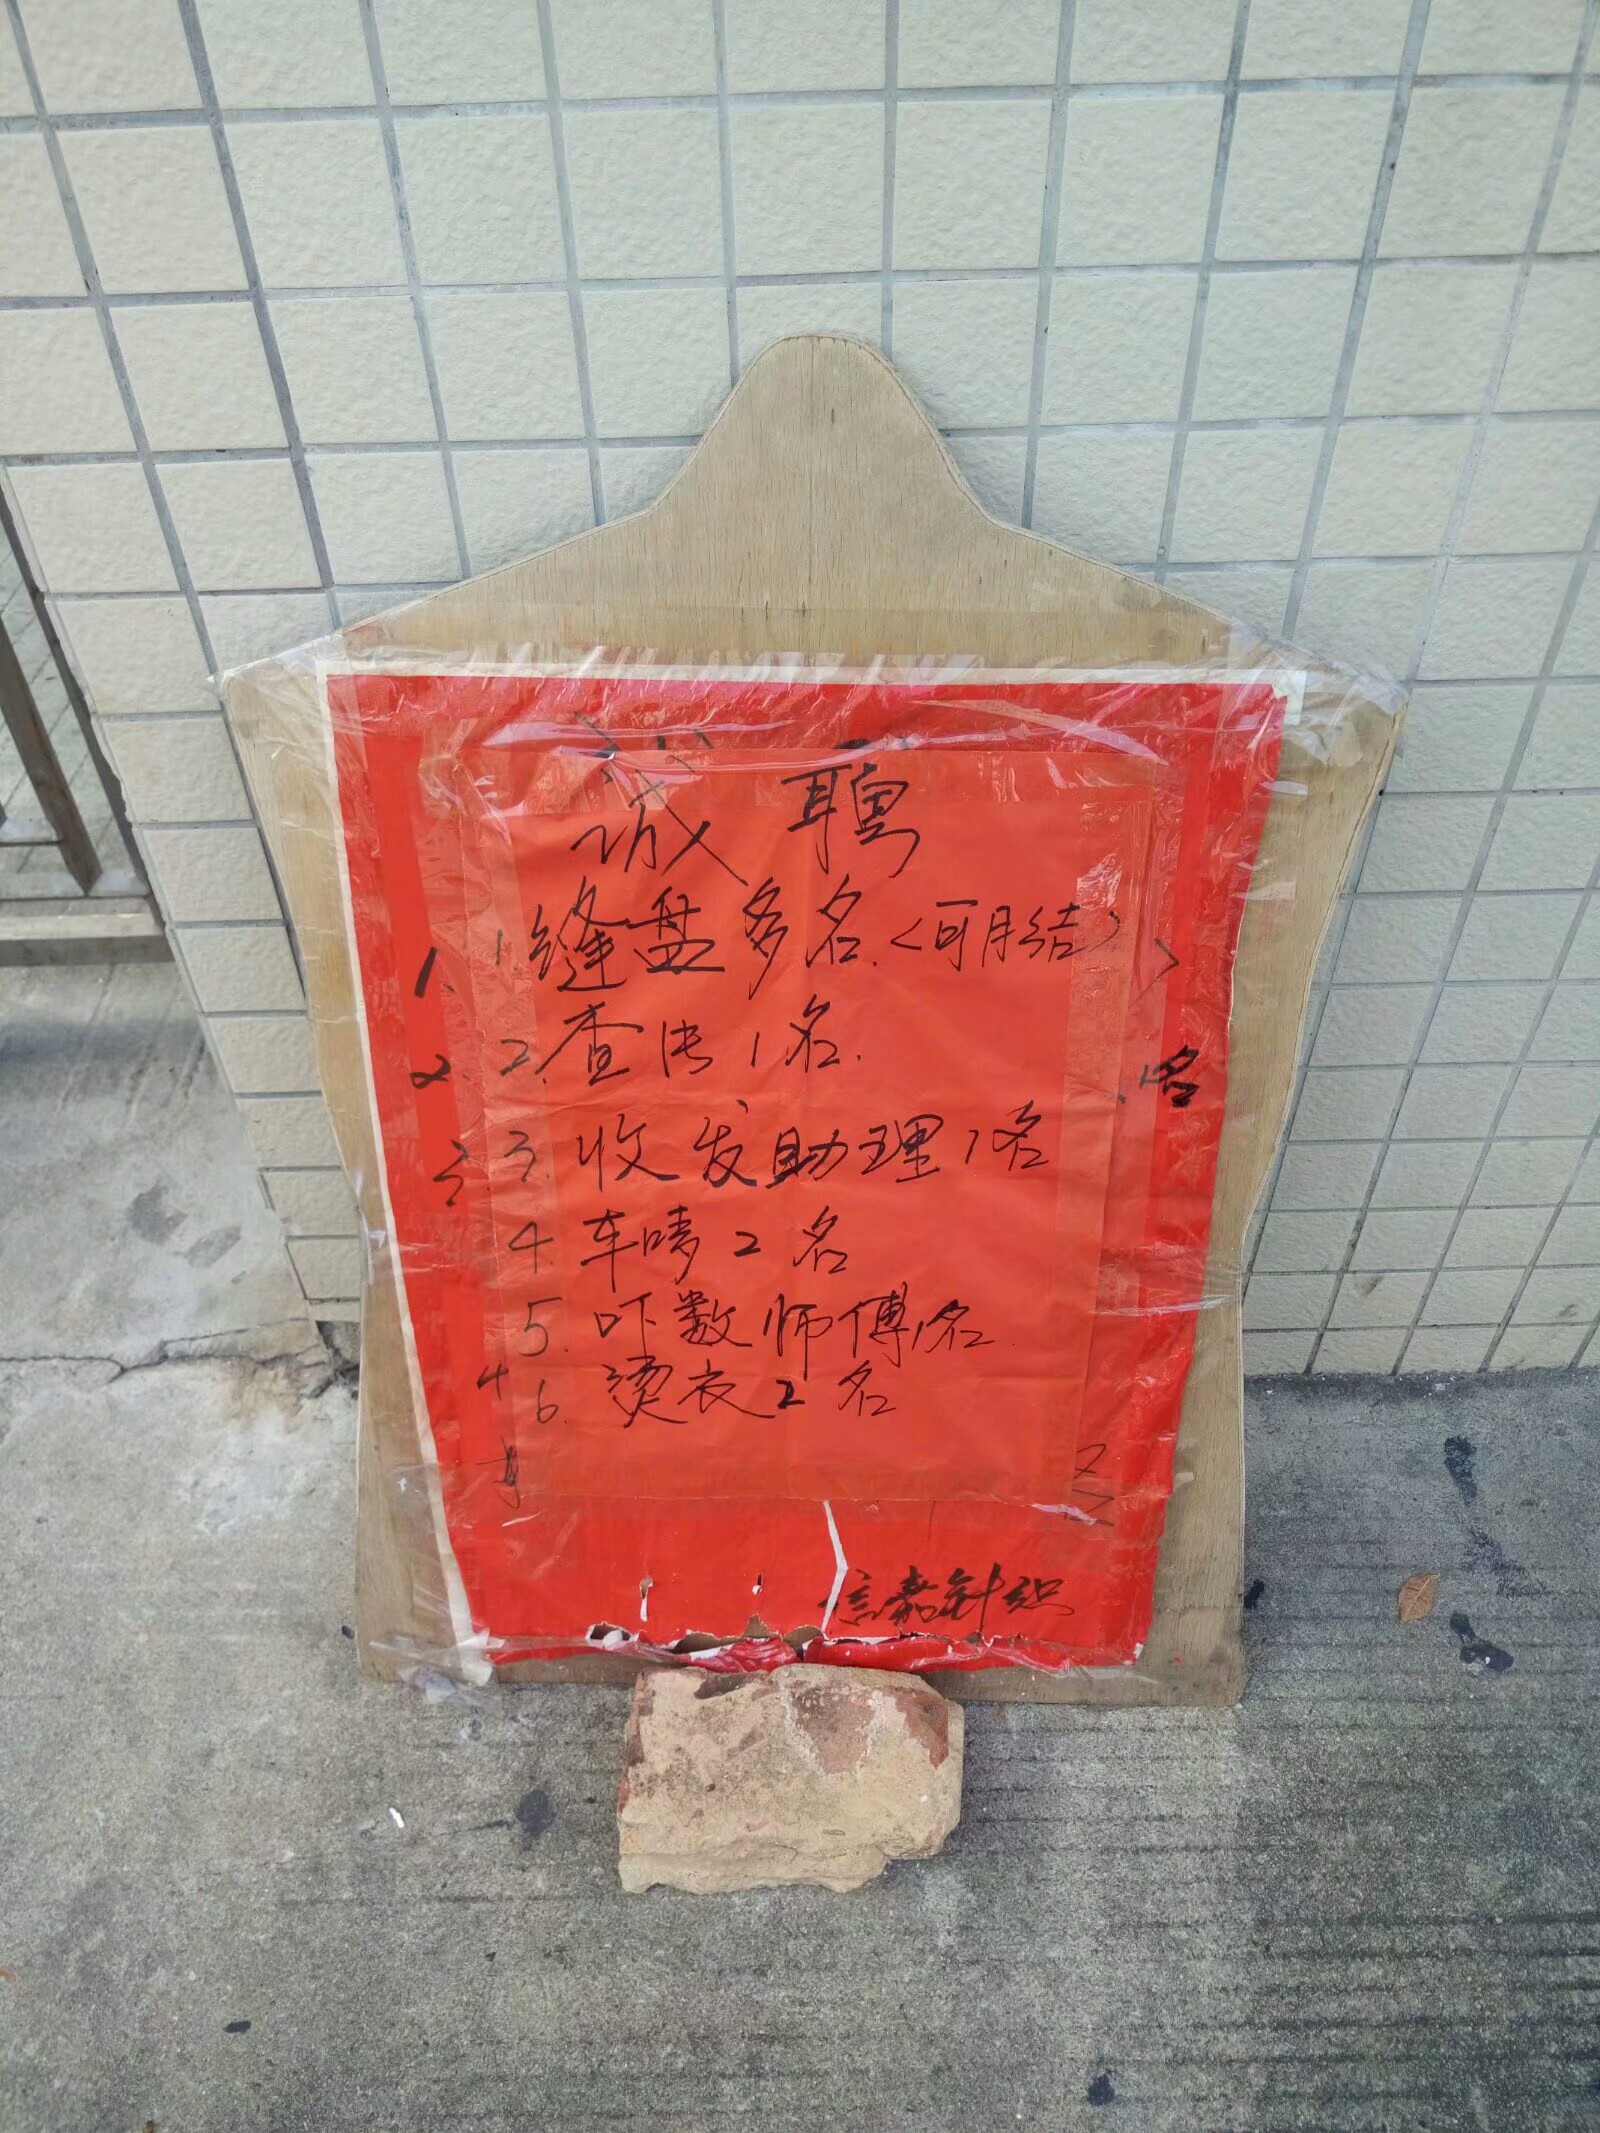 诚聘
1. 缝盘多名.<可月结>
2. 查法1名.
3. 收发助理1名
4. 车唛2名
5. 吓数师傅1名
6. 烫衣2名
信嘉针织